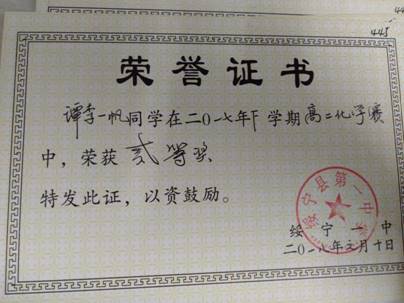 445
荣誉证书
谭李一帆同学在二〇一七年下学期高二化学竞赛
中，荣获贰等奖
特发此证，以资鼓励。
绥宁县第一中学
绥宁一中
二〇一八年三月十日